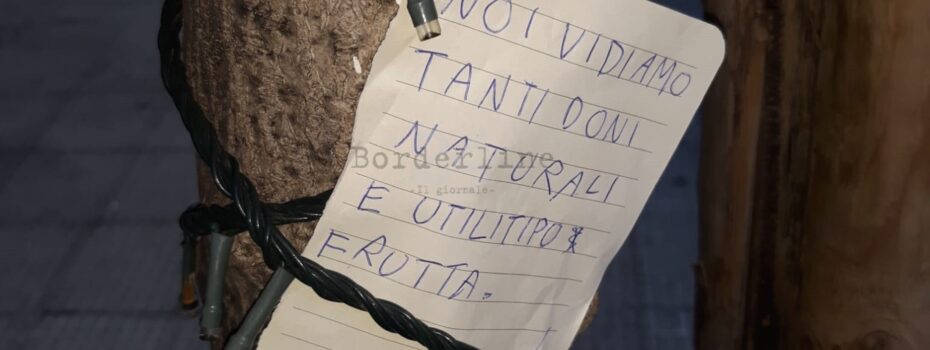 NOI VIDIAMO
TANTI DONI
NATURALI
E UTILITIPO
FRUTTA.
Borderline
-Il giornale-